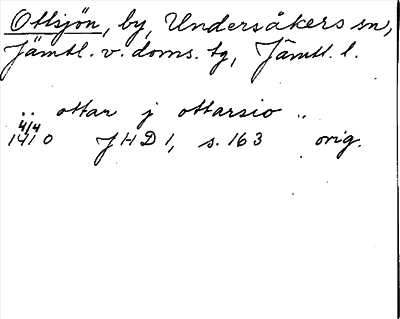 Ottsjön, by, Undersåkers sn,
Jämtl. v. doms. tg, Jämtl. l.
.. ottar j ottarsio ..
4/4
1410 JHD 1, s. 163 orig.